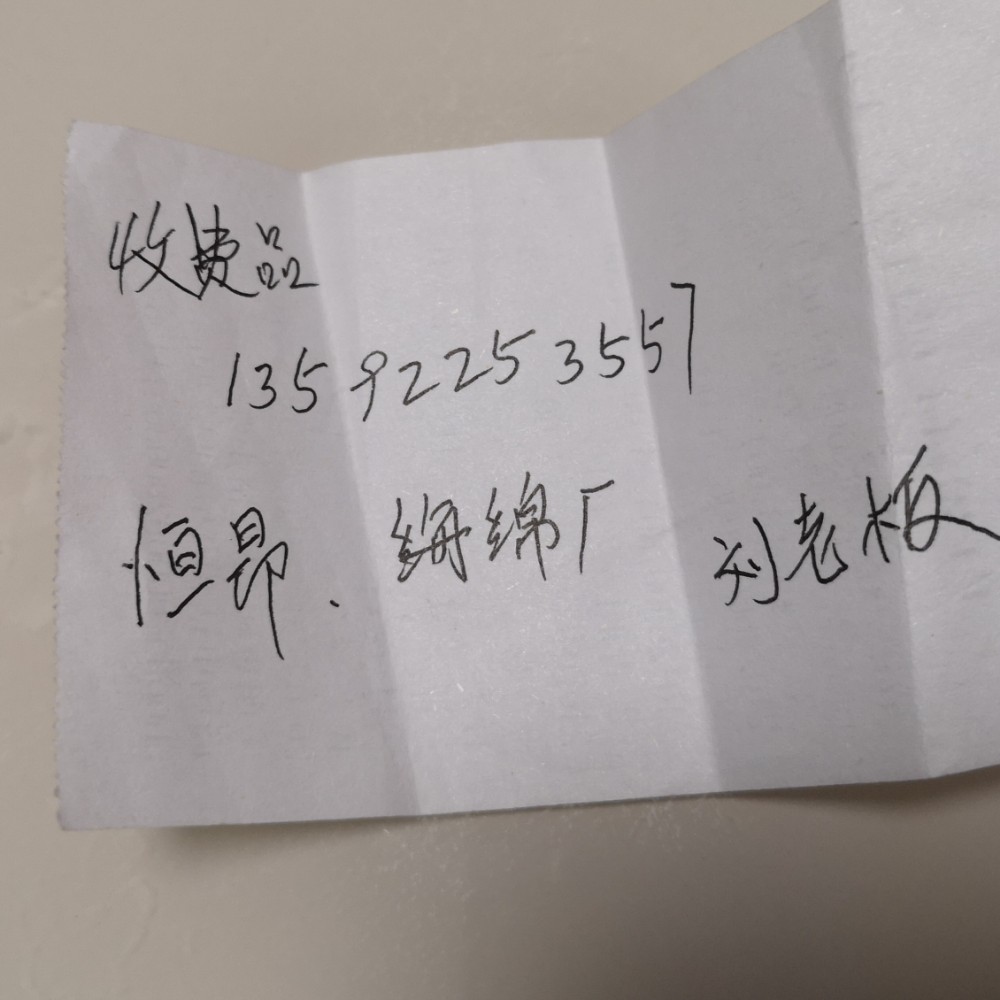 收费品
13592253557
恒昂. 海绵厂 刘老板